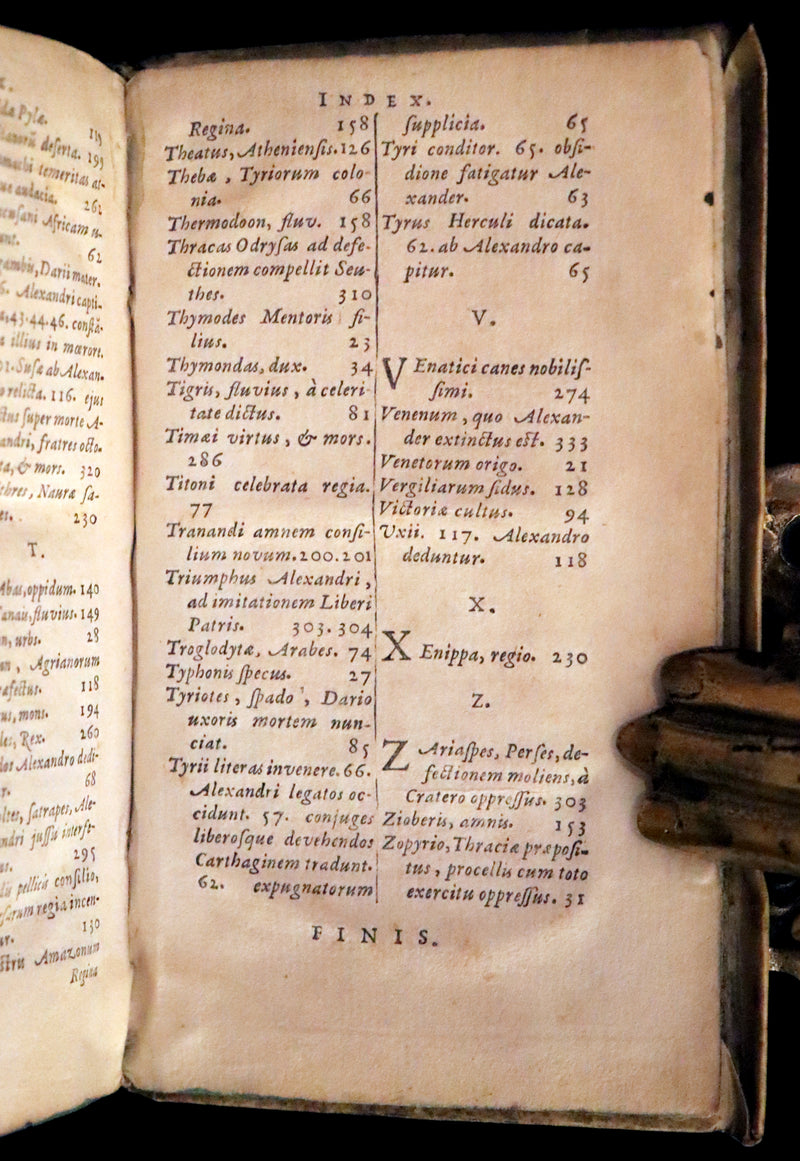 da Pylæ.
deserta. 195
temeritas at-
audacia. 261
Africam u-
62
Darii mater.
Alexandri capti-
43. 44. 46. constā-
illius in mœrore.
Susa ab Alexan.
relicta. 116. ejus
super morte A-
andri, fratres octo.
& mors. 320
Naura sa-
230
T.
Abas, oppidum. 140
fluvius. 149
urbs. 28
Agrianorum
118
mons. 194
Rex. 260
Alexandro dedi-
68
satrapes, Ale-
andri jussu interfi-
295
pellicis consilio,
regia incen-
130
Amazonum
Regina
INDEX.
Regina. 158
Theatus, Atheniensis. 126
Thebæ, Tyriorum colo-
nia. 66
Thermodoon, fluv. 158
Thracas Odrysas ad defe-
ctionem compellit Seu-
thes. 310
Thymodes Mentoris fi-
lius. 23
Thymondas, dux. 34
Tigris, fluvius, à celeri-
tate dictus. 81
Timæi virtus, & mors.
286
Titoni celebrata regia.
77
Tranandi amnem consi-
lium novum. 200. 201
Triumphus Alexandri,
ad imitationem Liberi
Patris. 303. 304
Troglodytæ, Arabes. 74
Typhonis specus. 27
Tyriotes, spado, Dario
uxoris mortem nun-
ciat. 85
Tyrii literas invenere. 66.
Alexandri legatos oc-
cidunt. 57. conjuges
liberosque devehendos
Carthaginem tradunt.
62. expugnatorum
supplicia. 65
Tyri conditor. 65. obsi-
dione fatigatur Ale-
xander. 63
Tyrus Herculi dicata.
62. ab Alexandro ca-
pitur. 65
V.
VEnatici canes nobilis-
simi. 274
Venenum, quo Alexan-
der extinctus est. 333
Venetorum origo. 21
Vergiliarum sidus. 128
Victoriæ cultus. 94
Vxii. 117. Alexandro
deduntur. 118
X.
XEnippa, regio. 230
Z.
ZAriaspes, Perses, de-
fectionem moliens, à
Cratero oppressus. 303
Zioberis, amnis. 153
Zopyrio, Thraciæ præposi-
tus, procellis cum toto
exercitu oppressus. 31
FINIS.